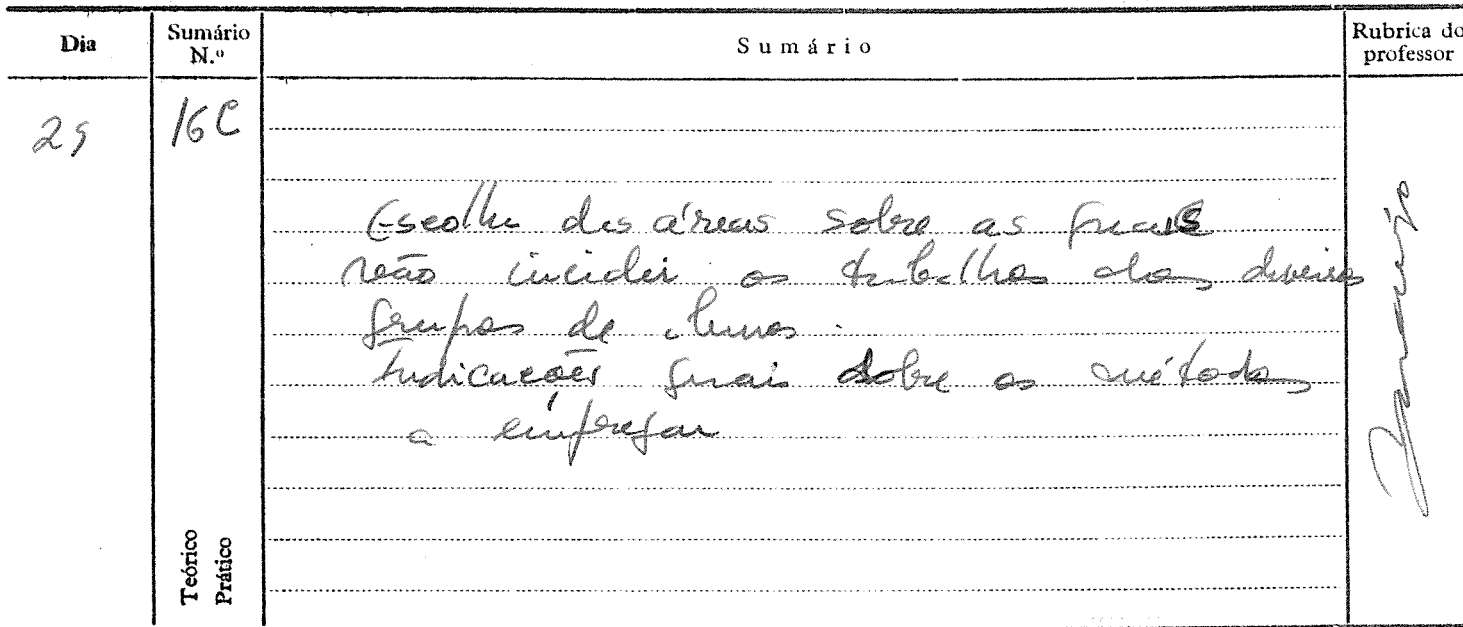 Dia
Sumário N.º
Sumário
Rubrica do professor
29
16C
Escolha das áreas sobre as quais
vão incidir os trabalhos dos diversos
grupos de alunos.
Indicações gerais sobre os métodos
a empregar
Teórico
Prático